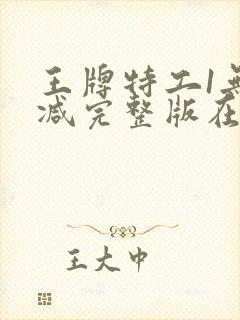 王牌特工1无
减完整版在
王大中